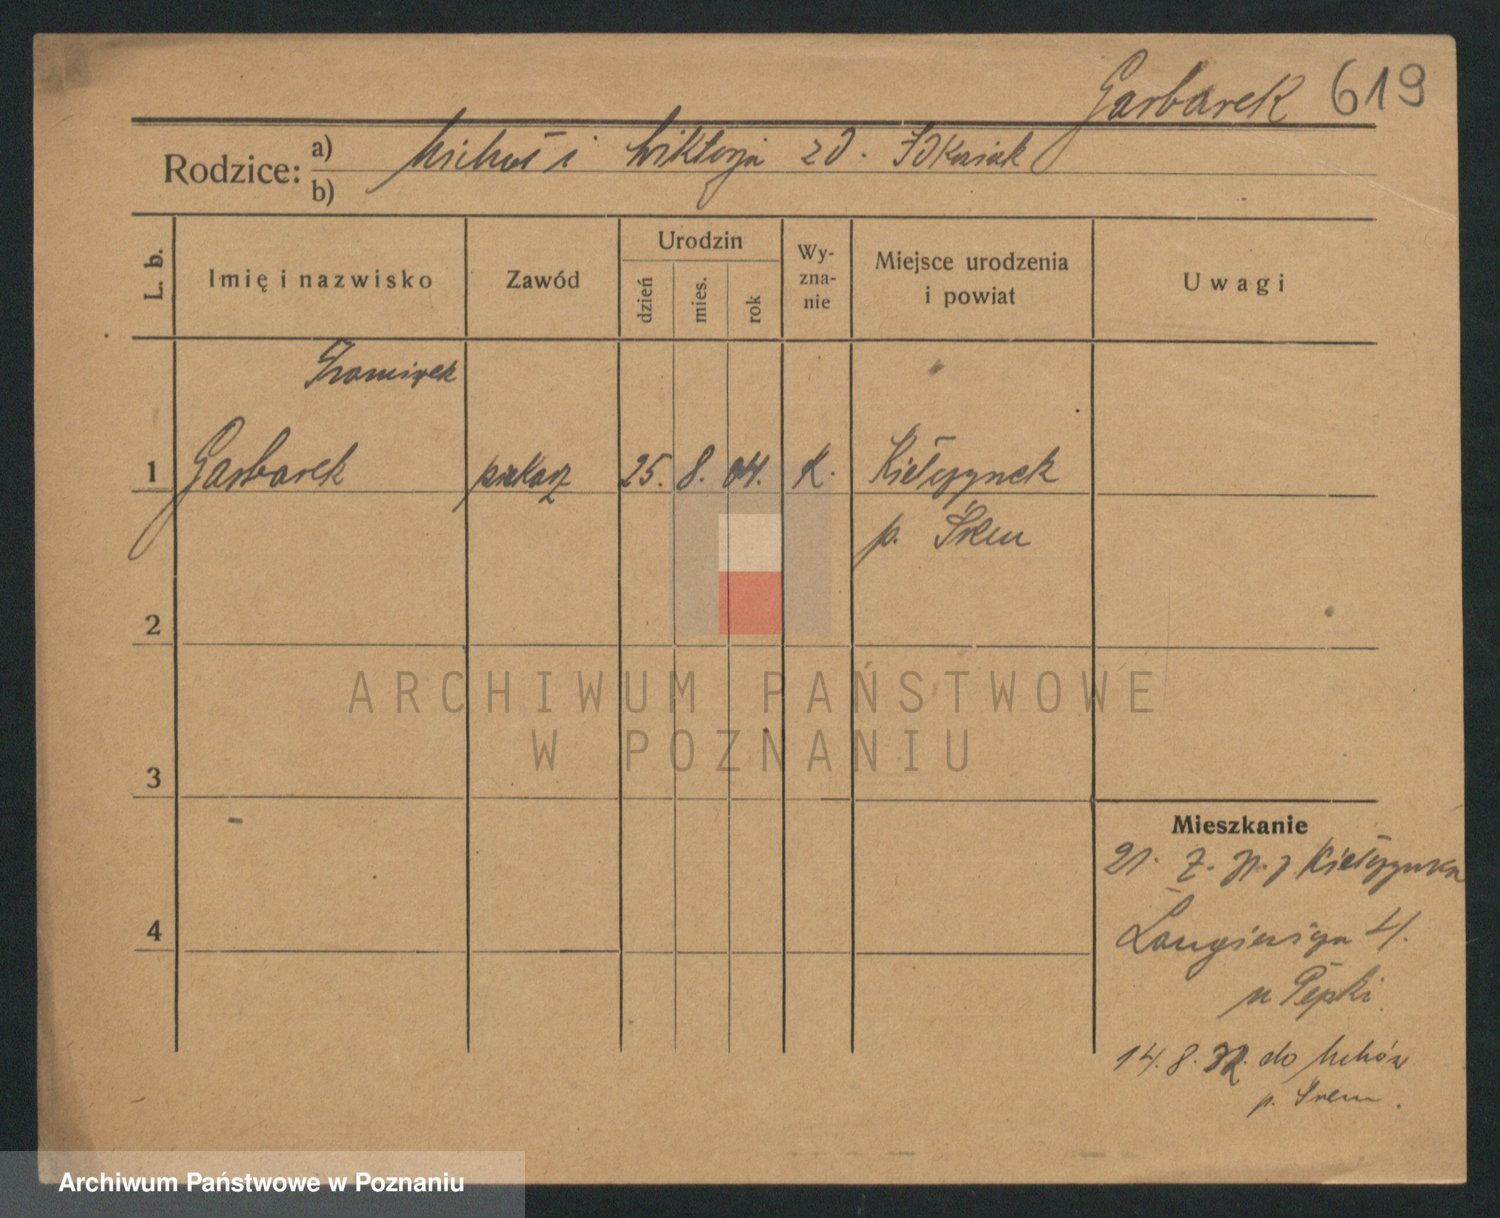 Garbarek 619
Rodzice: a) Michał i Wiktorja zd.
b)
L. b. Imię i nazwisko Zawód Urodzin dzień mies. rok Wy-zna-nie Miejsce urodzenia i powiat Uwagi
Franciszek
1 Garbarek piekarz 25. 8. 04. K. Kiełczynek
p. Śrem
2
ARCHIWUM PAŃSTWOWE
W POZNANIU
3
Mieszkanie
21. 7. 31 z Kiełczynka
4
4.
u
14. 8. 32. do
p. Śrem.
Archiwum Państwowe w Poznaniu